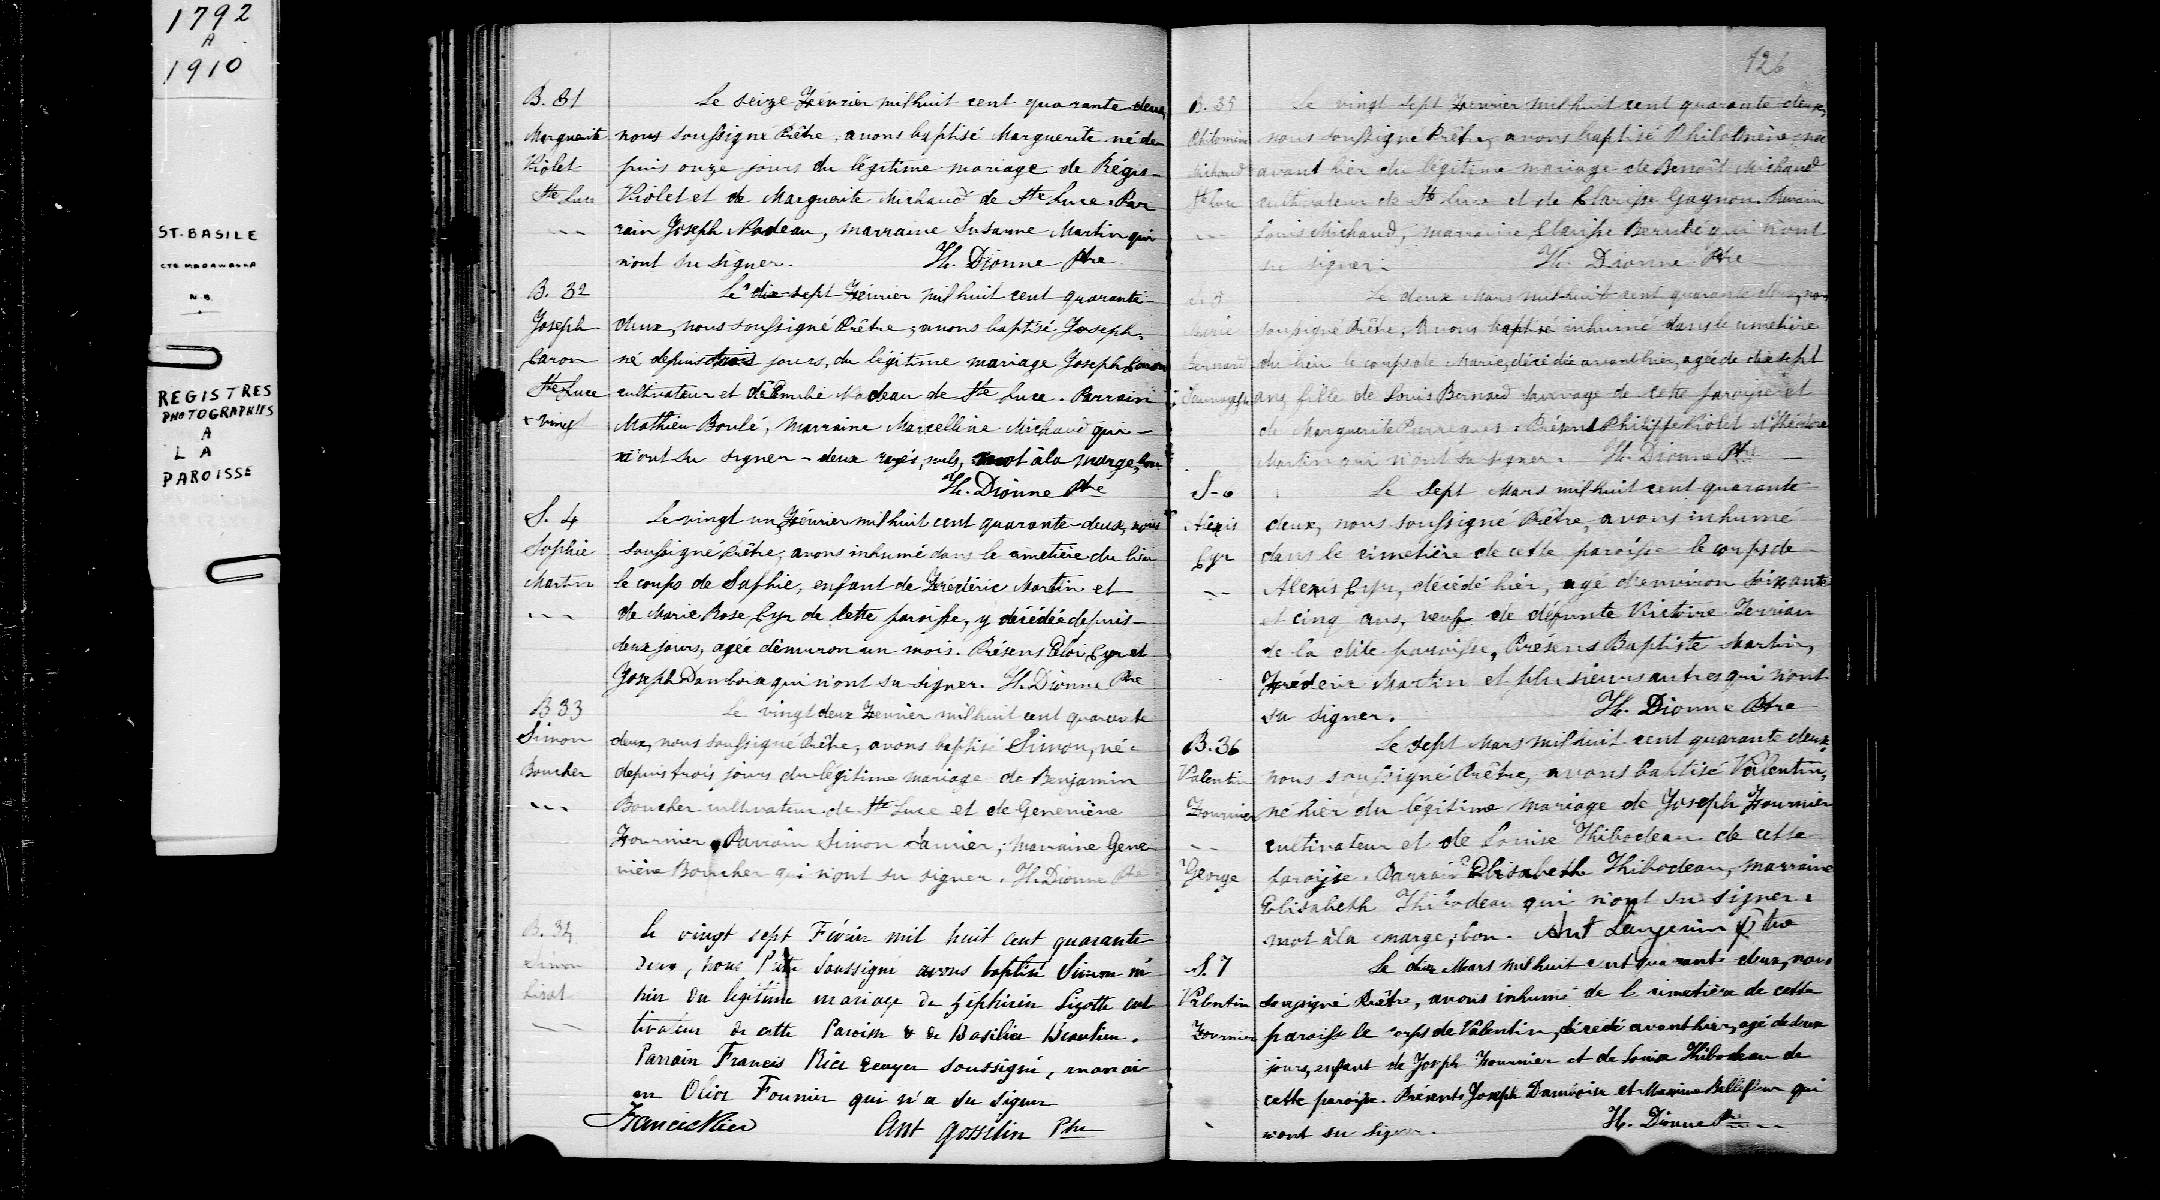 1792
A
1910
ST. BASILE
CTE MADAWASKA
N.B.
REGISTRES
PHOTOGRAPHIES
A
L A
PAROISSE
B. 31
Marguerite
Violet
Ste Luce
Le seize Février mil huit cent quarante deux,
nous soussigné Prêtre, avons baptisé Marguerite né de
puis onze jours du légitime mariage de Régis
Violet et de Marguerite Michaud de Ste Luce. Par
rain Joseph Nadeau, marraine Susanne Martin qui
n'ont su signer. H. Dionne Ptre
B. 32
Joseph
Caron
Ste Luce
+ vingt
Le dix sept Février mil huit cent quarante
deux, nous soussigné Prêtre, avons baptisé Joseph,
né depuis trois jours, du légitime mariage Joseph Caron
cultivateur et d'Emelie Nadeau de Ste Luce. Parrain
Mathieu Boulé, marraine Marcelline Michaud qui
n'ont su signer - deux rayés, nuls, mot à la marge, bon
H. Dionne Ptre
S. 4
Sophie
Martin
Le vingt un Février mil huit cent quarante-deux, nous
soussigné Prêtre, avons inhumé dans le cimetière du lieu
le corps de Sophie, enfant de Fréderic Martin et
de Marie Rose Cyr de cette paroisse, y décédée depuis
deux jours, agée d'environ un mois. Présens Eloi Cyr et
Joseph Damboise qui n'ont su signer. H. Dionne Ptre
B 33
Simon
Boucher
Le vingt deux Fevrier mil huit cent quarante
deux, nous soussigné Prêtre, avons baptisé Simon, né
depuis trois jours du légitime mariage de Benjamin
Boucher cultivateur de Ste Luce et de Geneviève
Fournier. Parrain Simon , marraine Gene
viève Boucher qui n'ont su signer. H. Dionne Ptre
B. 34
Simon
Lizot
Le vingt sept Février mil huit cent quarante
Deux, nous Prêtre Soussigné avons baptisé Simon né
hier du legitime mariage de Zéphirin Lizotte cul
tivateur de cette Paroisse & de Basilice Beaulieu.
Parrain Francis Rice ecuyer soussigné, marrai
ne Olive Fournier qui n'a su signer
Francis Rice Ant Gosselin Ptre
126
B. 35
Philomène
Michaud
Ste Luce
Le vingt sept Fevrier mil huit cent quarante-deux,
nous soussigné Prêtre, avons baptisé Philomène née
avant hier du légitime mariage de Benoît Michaud
cultivateur de Ste Luce et de Clarisse Gagnon. Parrain
Louis Michaud, marraine Clarisse Berubé qui n'ont
su signer. H. Dionne Ptre
Marie
Bernard
Sauvagesse
Le deux Mars mil huit cent quarante deux, nous
soussigné Prêtre, avons baptisé inhumé dans le cimetière
du lieu le corps de Marie, décédée avant hier, agée de dix sept
ans, fille de Louis Bernard sauvage de cette paroisse et
de Marguerite . Présens Philippe Violet et Théodore
Martin qui n'ont su signer. H. Dionne Ptre
S-6
Alexis
Cyr
Le Sept Mars mil huit cent quarante
deux, nous soussigné Prêtre, avons inhumé
dans le cimetière de cette paroisse le corps de
Alexis Cyr, décédé hier, agé d'environ soixante
et cinq ans, veuf de défunte Victoire Terriau
de la dite paroisse, Présens Baptiste Martin,
Fréderic Martin et plusieurs autres qui n'ont
su signer. H. Dionne Ptre
B. 36
Valentin
Fournier
George
Le sept Mars mil huit cent quarante deux,
nous soussigné Prêtre, avons baptisé Valentin,
né hier du légitime mariage de Joseph Fournier
cultivateur et de Louise Thibodeau de cette
paroisse. Parrain Elisabeth Thibodeau, marraine
Elisabeth Thibodeau qui n'ont su signer.
mot à la marge, bon. Ant Langevin Ptre
S. 7
Valentin
Fournier
Le dix Mars mil huit cent quarante deux, nous
soussigné Prêtre, avons inhumé de l cimetière de cette
paroisse le corps de Valentin, décédé avant hier, agé de deux
jours, enfant de Joseph Fournier et de Louise Thibodeau de
cette paroisse. Présents Joseph Damboise et Maxime Bellefleur qui
n'ont su signer. H. Dionne Ptre